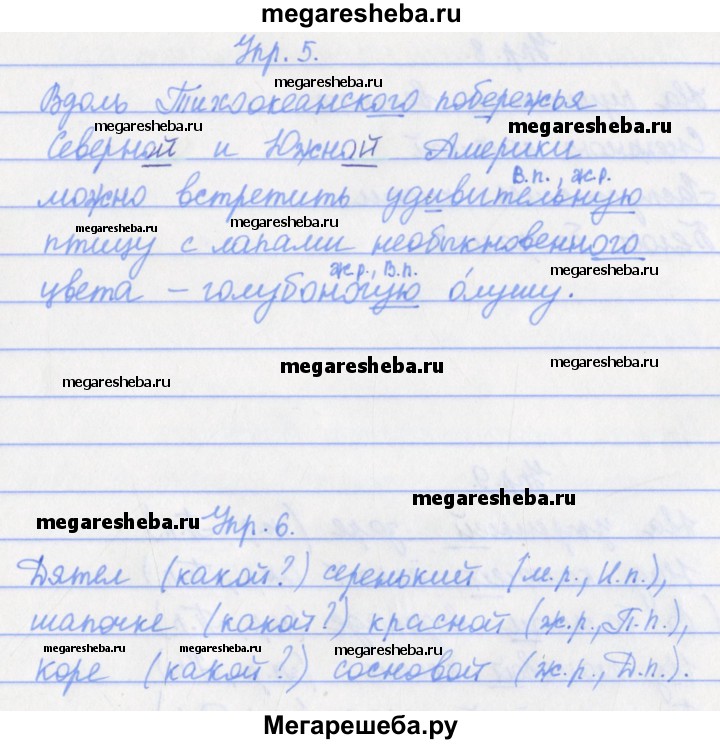 megaresheba.ru
Упр. 5.
megaresheba.ru
Вдоль Тихоокеанского побережья
megaresheba.ru megaresheba.ru
Северной и Южной Америки
В.п., ж.р.
можно встретить удивительную
megaresheba.ru megaresheba.ru
птицу с лапами необыкновенного
ж.р., В.п. megaresheba.ru
цвета – голубоногую о́лушу.
megaresheba.ru megaresheba.ru
megaresheba.ru
megaresheba.ru
megaresheba.ru Упр. 6.
Дятел (какой?) серенький (м.р., И.п.),
шапочке (какой?) красной (ж.р., П.п.),
megaresheba.ru megaresheba.ru megaresheba.ru
коре (какой?) сосновой (ж.р., Д.п.).
Мегарешеба.ру